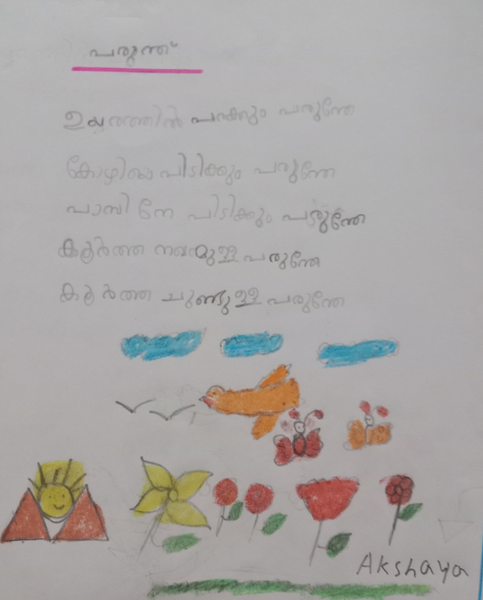 പരുന്ത്
ഉയരത്തിൽ പറക്കും പരുന്തേ
കോഴിയെ പിടിക്കും പരുന്തേ
പാമ്പിനേ പിടിക്കും പരുന്തേ
കൂർത്ത നഖമുള്ള പരുന്തേ
കൂർത്ത ചുണ്ടുള്ള പരുന്തേ
Akshaya